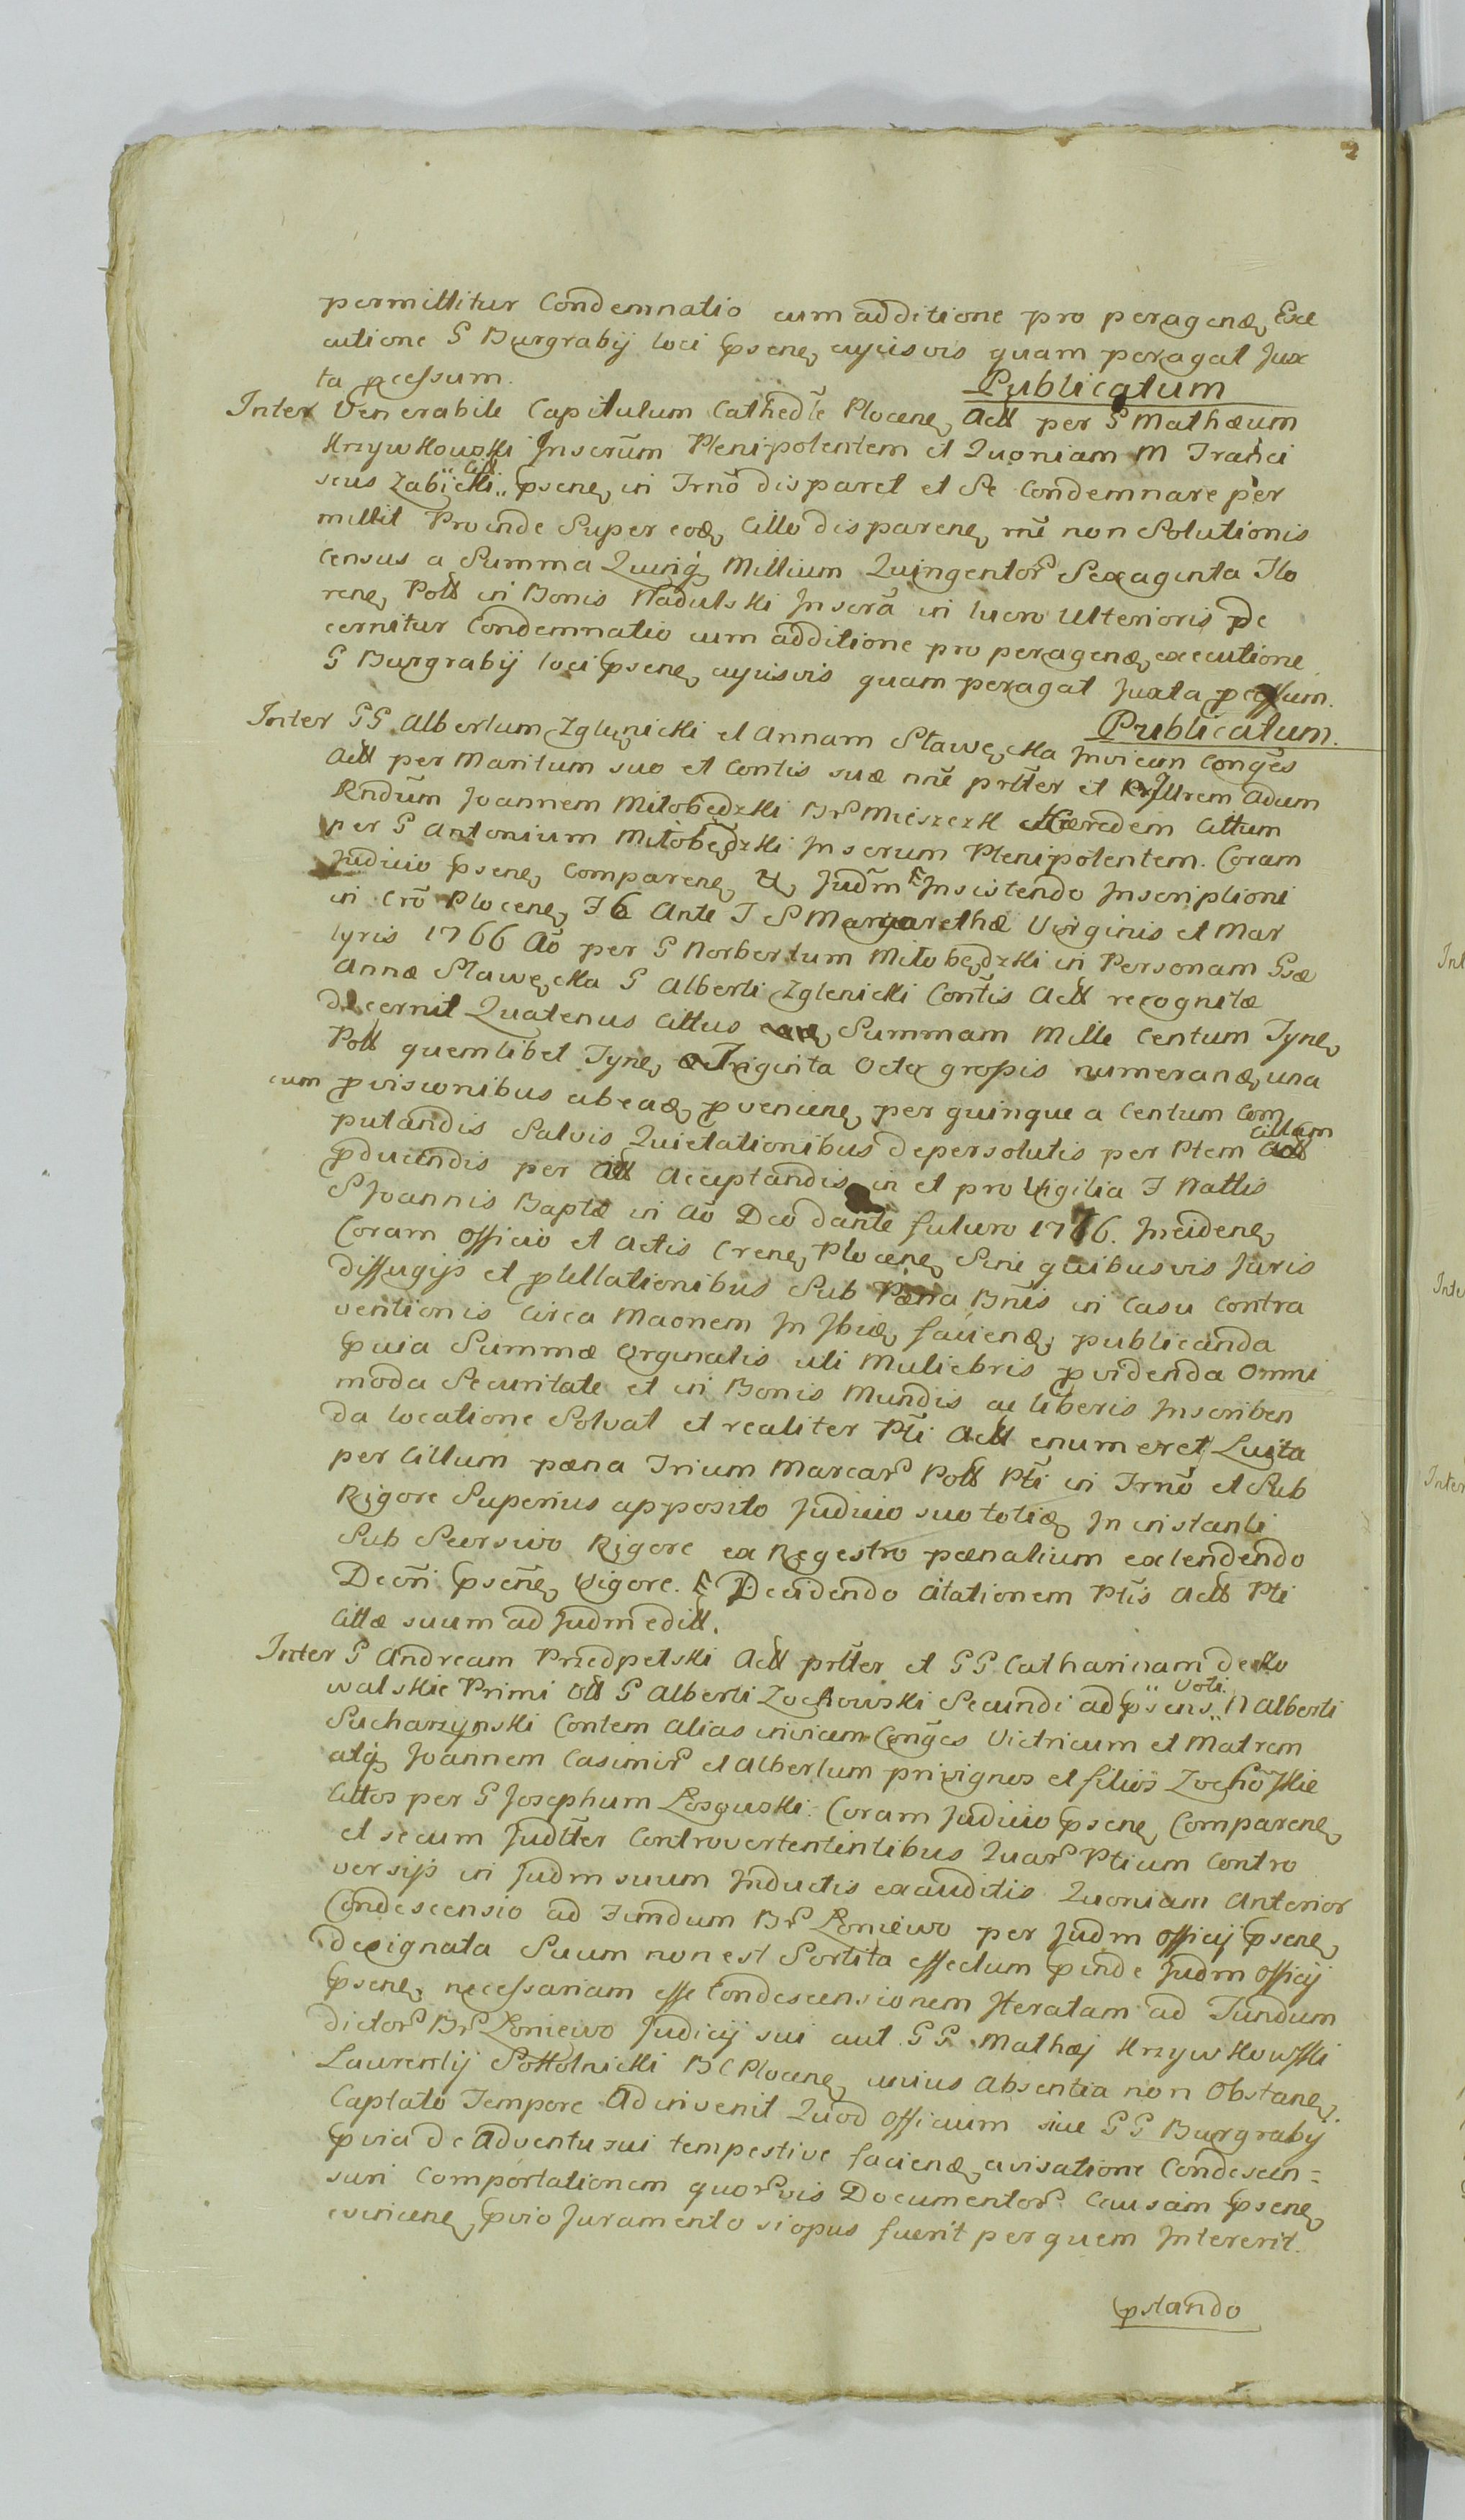 2
permittitur Condemnatio cum additione pro peragenđ Exe
cutione G Burgrabij loci psenę cujusvis quam peragat Jux
ta pcessum.
Publicatum
Inter Venerabile Capitulum Cathedłe Plocenę Actt per G Mathæum
Krzywkowski Inscrūm Plenipotentem et Quoniam M Franci
scus Zabicki Citt psenę in Trnō disparet et Se Condemnare per
mittit Proinde Super eođ Citto disparenę rnē non Solutionis
Census a Summa Quinq Millium Quingentor Sexaginta Flo
renę Poll in Bonis Nadulski Inscrā in lucro Ulterioris De
cernitur Condemnatio cum additione pro peragenđ executione
G Burgrabij loci psenę cujusvis quam peragat Juxta pcessum.
Publicatum.
Inter GG Albertum Zglenicki et Annam Sławęcka Invicem Conges
Actt per Maritum suo et Contis suæ nnē prtter et
Rndūm Joannem Miłobędzki Br Mieszezk Hæredem Cittum
per G Antonium Miłobędzki Inscrum Plenipotentem. Coram
Judicio psenę Comparenę Judm Insistendo Inscriptioni
in Crō Plocenę F6 Ante F S Margarethæ Virginis et Mar
tyris 1766 Aō per G Norbertum Miłobędzki in Personam Gsæ
Annæ Sławęcka G Alberti Zglenicki Contis Actt recognitæ
decernit Quatenus Cittus Summam Mille Centum Tynę
Poll quemlibet Tynę a Triginta Octo grossis numeranđ una
cum pvisionibus ab eađ pvenienę per quinque a Centum Com
putandis Salvis Quietationibus depersolutis per Ptem Cittam
pducendis per Actt Acceptandis in et pro Vigilia F Nattis
S Joannis Baptæ in Aō Deo dante futuro 1776. Incidenę
Coram Officio et Actis Crenę Plocenę Sine quibusvis Juris
diffugijs et ptellationibus Sub Pæna Bnīs in Casu Contra
ventionis Circa Maonem In Ibiđ facienđ publicanda
pvia Summæ Orginalis uti Muliebris pvidenda Omni
moda Securitate et in Bonis Mundis ac liberis Inscriben
da locatione Solvat et realiter Pti Actt enumeret Luita
per Cittum pæna Trium Marcar Poll Pti in Trnō et Sub
Rigore Superius apposito Judicio suo totiđ In instanti
Sub Seorsivo Rigore ex Regestro pænalium extendendo
Decrī psenę Vigore. Decidendo Citationem Ptis Actt Pti
Cittæ suum ad Judm editt.
Inter G Andream Przedpełski Actt prtter et GG Catharinam de Ko
walskie Primi Vott G Alberti Zochowski Secundi ad psens Voti N Alberti
Sucharzynski Contem alias invicem Conges Victricum et Matrem
atq Joannem Casimir et Albertum privignos et filios Zochōskie
Cittos per G Josephum Łosowski. Coram Judicio psenę Comparenę
et secum Judtter Controvertentintibus Quar Ptium Contro
versijs in Judm suum Inductis exauditis Quoniam Anterior
Condescensio ad Fundum Br Łoniewo per Judm Officij psenę
designata Suum non est Sortita effectum pinde Judm Officij
psenę necessariam esse Condescensionem Iteratam ad Fundum
dictor Br Łoniewo Judicij sui aut GG Mathæj Krzywkowski
Laurentij Sokolnicki B C Plocenę unius Absentia non Obstanę
Captato Tempore Adinvenit Quod Officium sive GG Burgrabij
pvia de Adventu sui tempestive facienđ avisatione Condescen=
suri Comportationem quorvis Documentor Causam psenę
evincenę pvio Juramento si opus fuerit per quem Intererit.
pstando
Inter